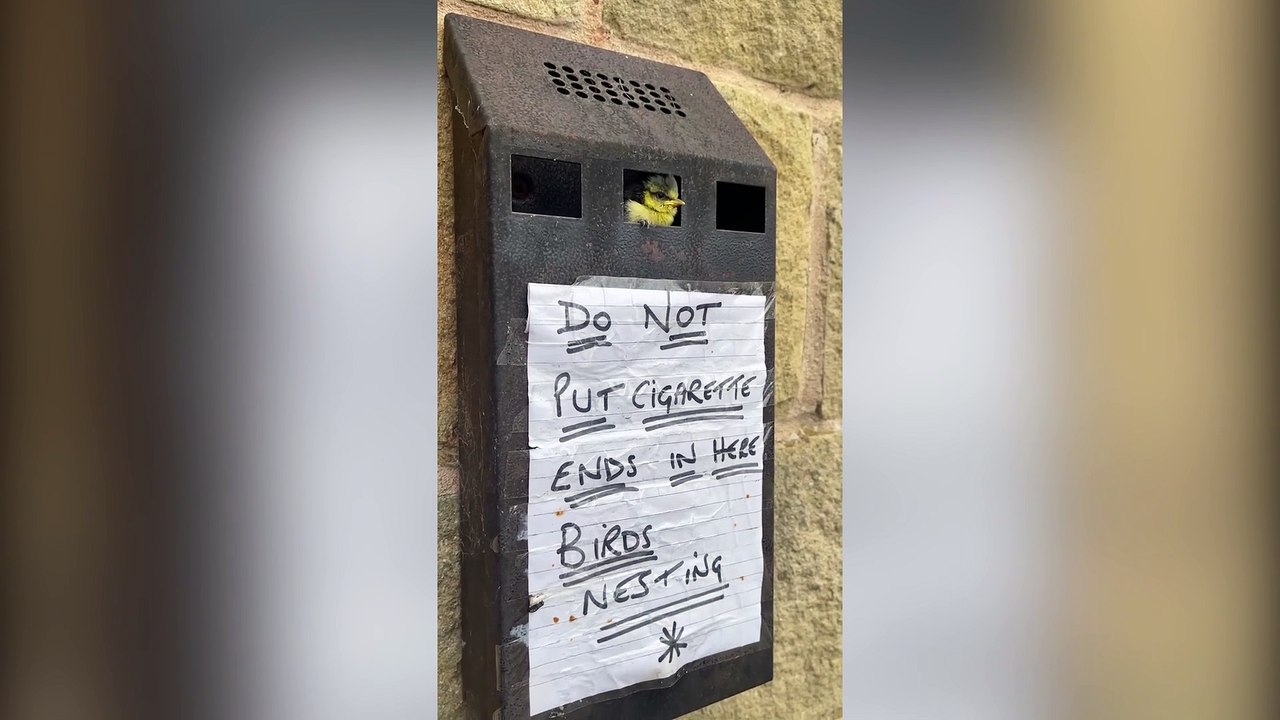 DO NOT
PUT CIGARETTE
ENDS IN HERE
BIRDS
NESTING
*